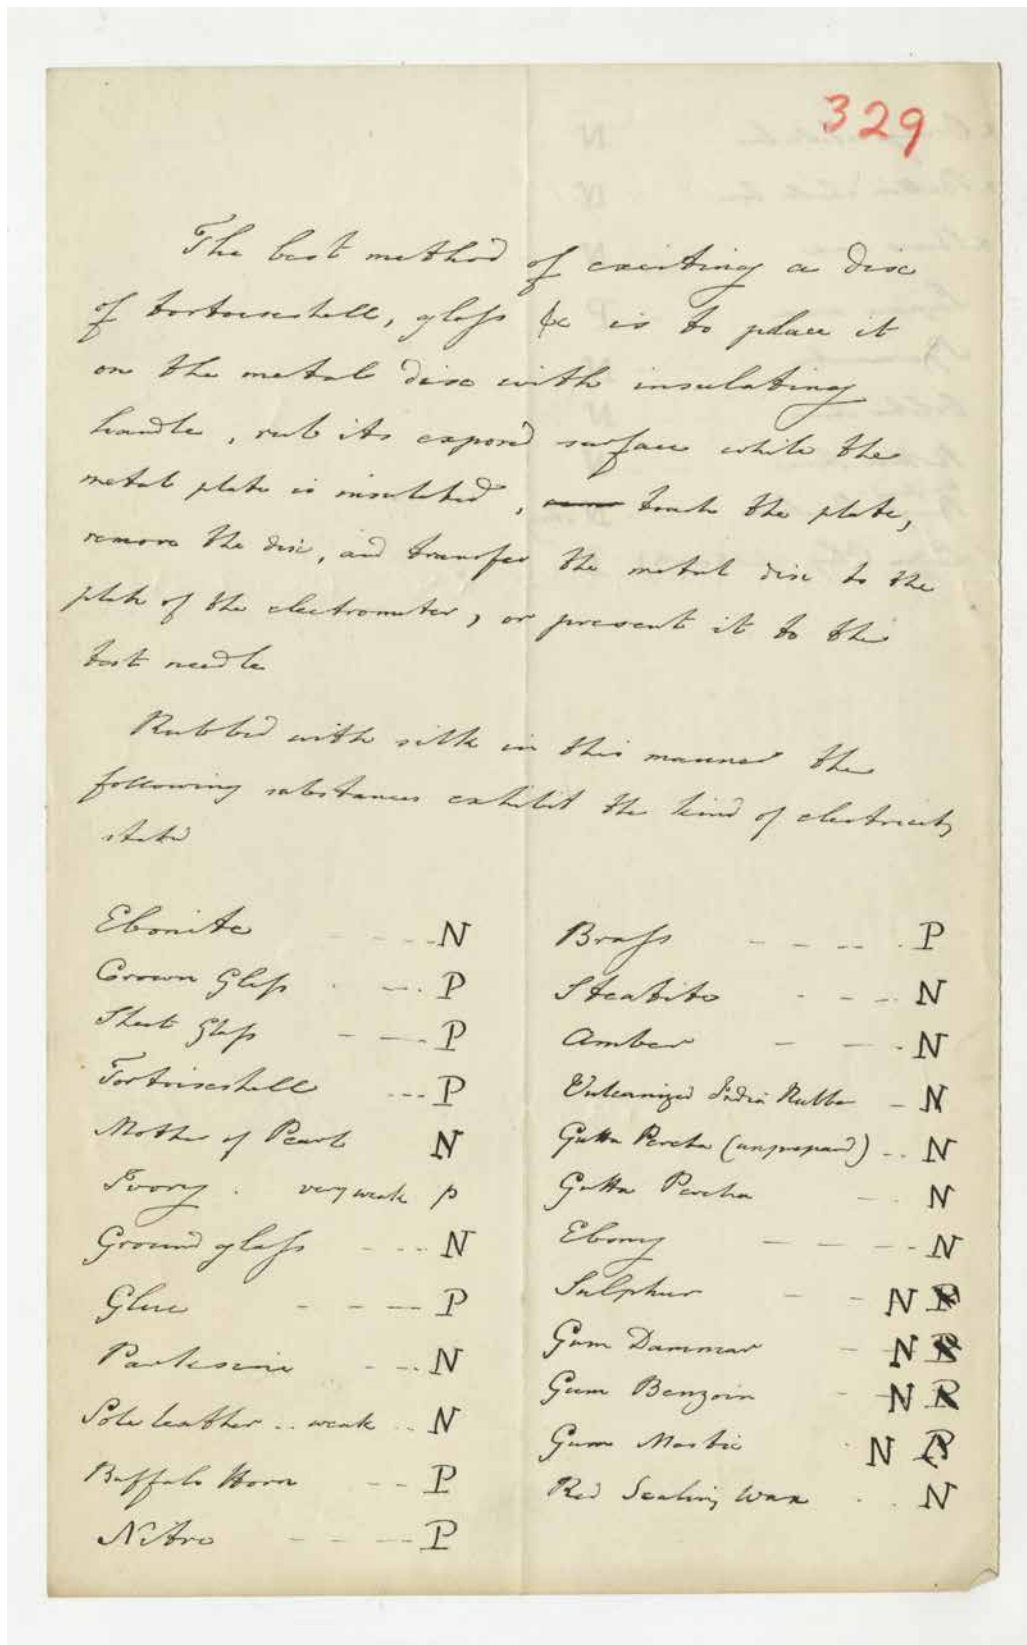 329
The best method of exciting a disc
of tortoiseshell, glass &c is to place it
on the metal disc with insulating
handle, rub its exposed surface while the
metal plate is insulated, touch the plate,
remove the disc, and transfer the metal disc to the
plate of the electrometer, or present it to the
test needle
Rubbed with silk in this manner the
following substances exhibit the kind of electricity
stated
Ebonite - - - - N
Crown Glass . - - . P
Sheet Glass - - - P
Tortoiseshell - - - P
Mother of Pearl N
Ivory . very weak P
Ground glass - - - N
Glue - - - - P
Parkesine - - . N
Sole leather .. weak .. N
Buffalo Horn - - P
Nitre - - - - P
Brass - - - - . P
Steatite - - - . N
Amber - - - . N
Vulcanized India Rubber - N
Gutta Percha (unprepared) - .. N
Gutta Percha - . N
Ebony - - - - . N
Sulphur - - N P
Gum Dammar - N P
Gum Benzoin - N P
Gum Mastic . N P
Red Sealing Wax . . N